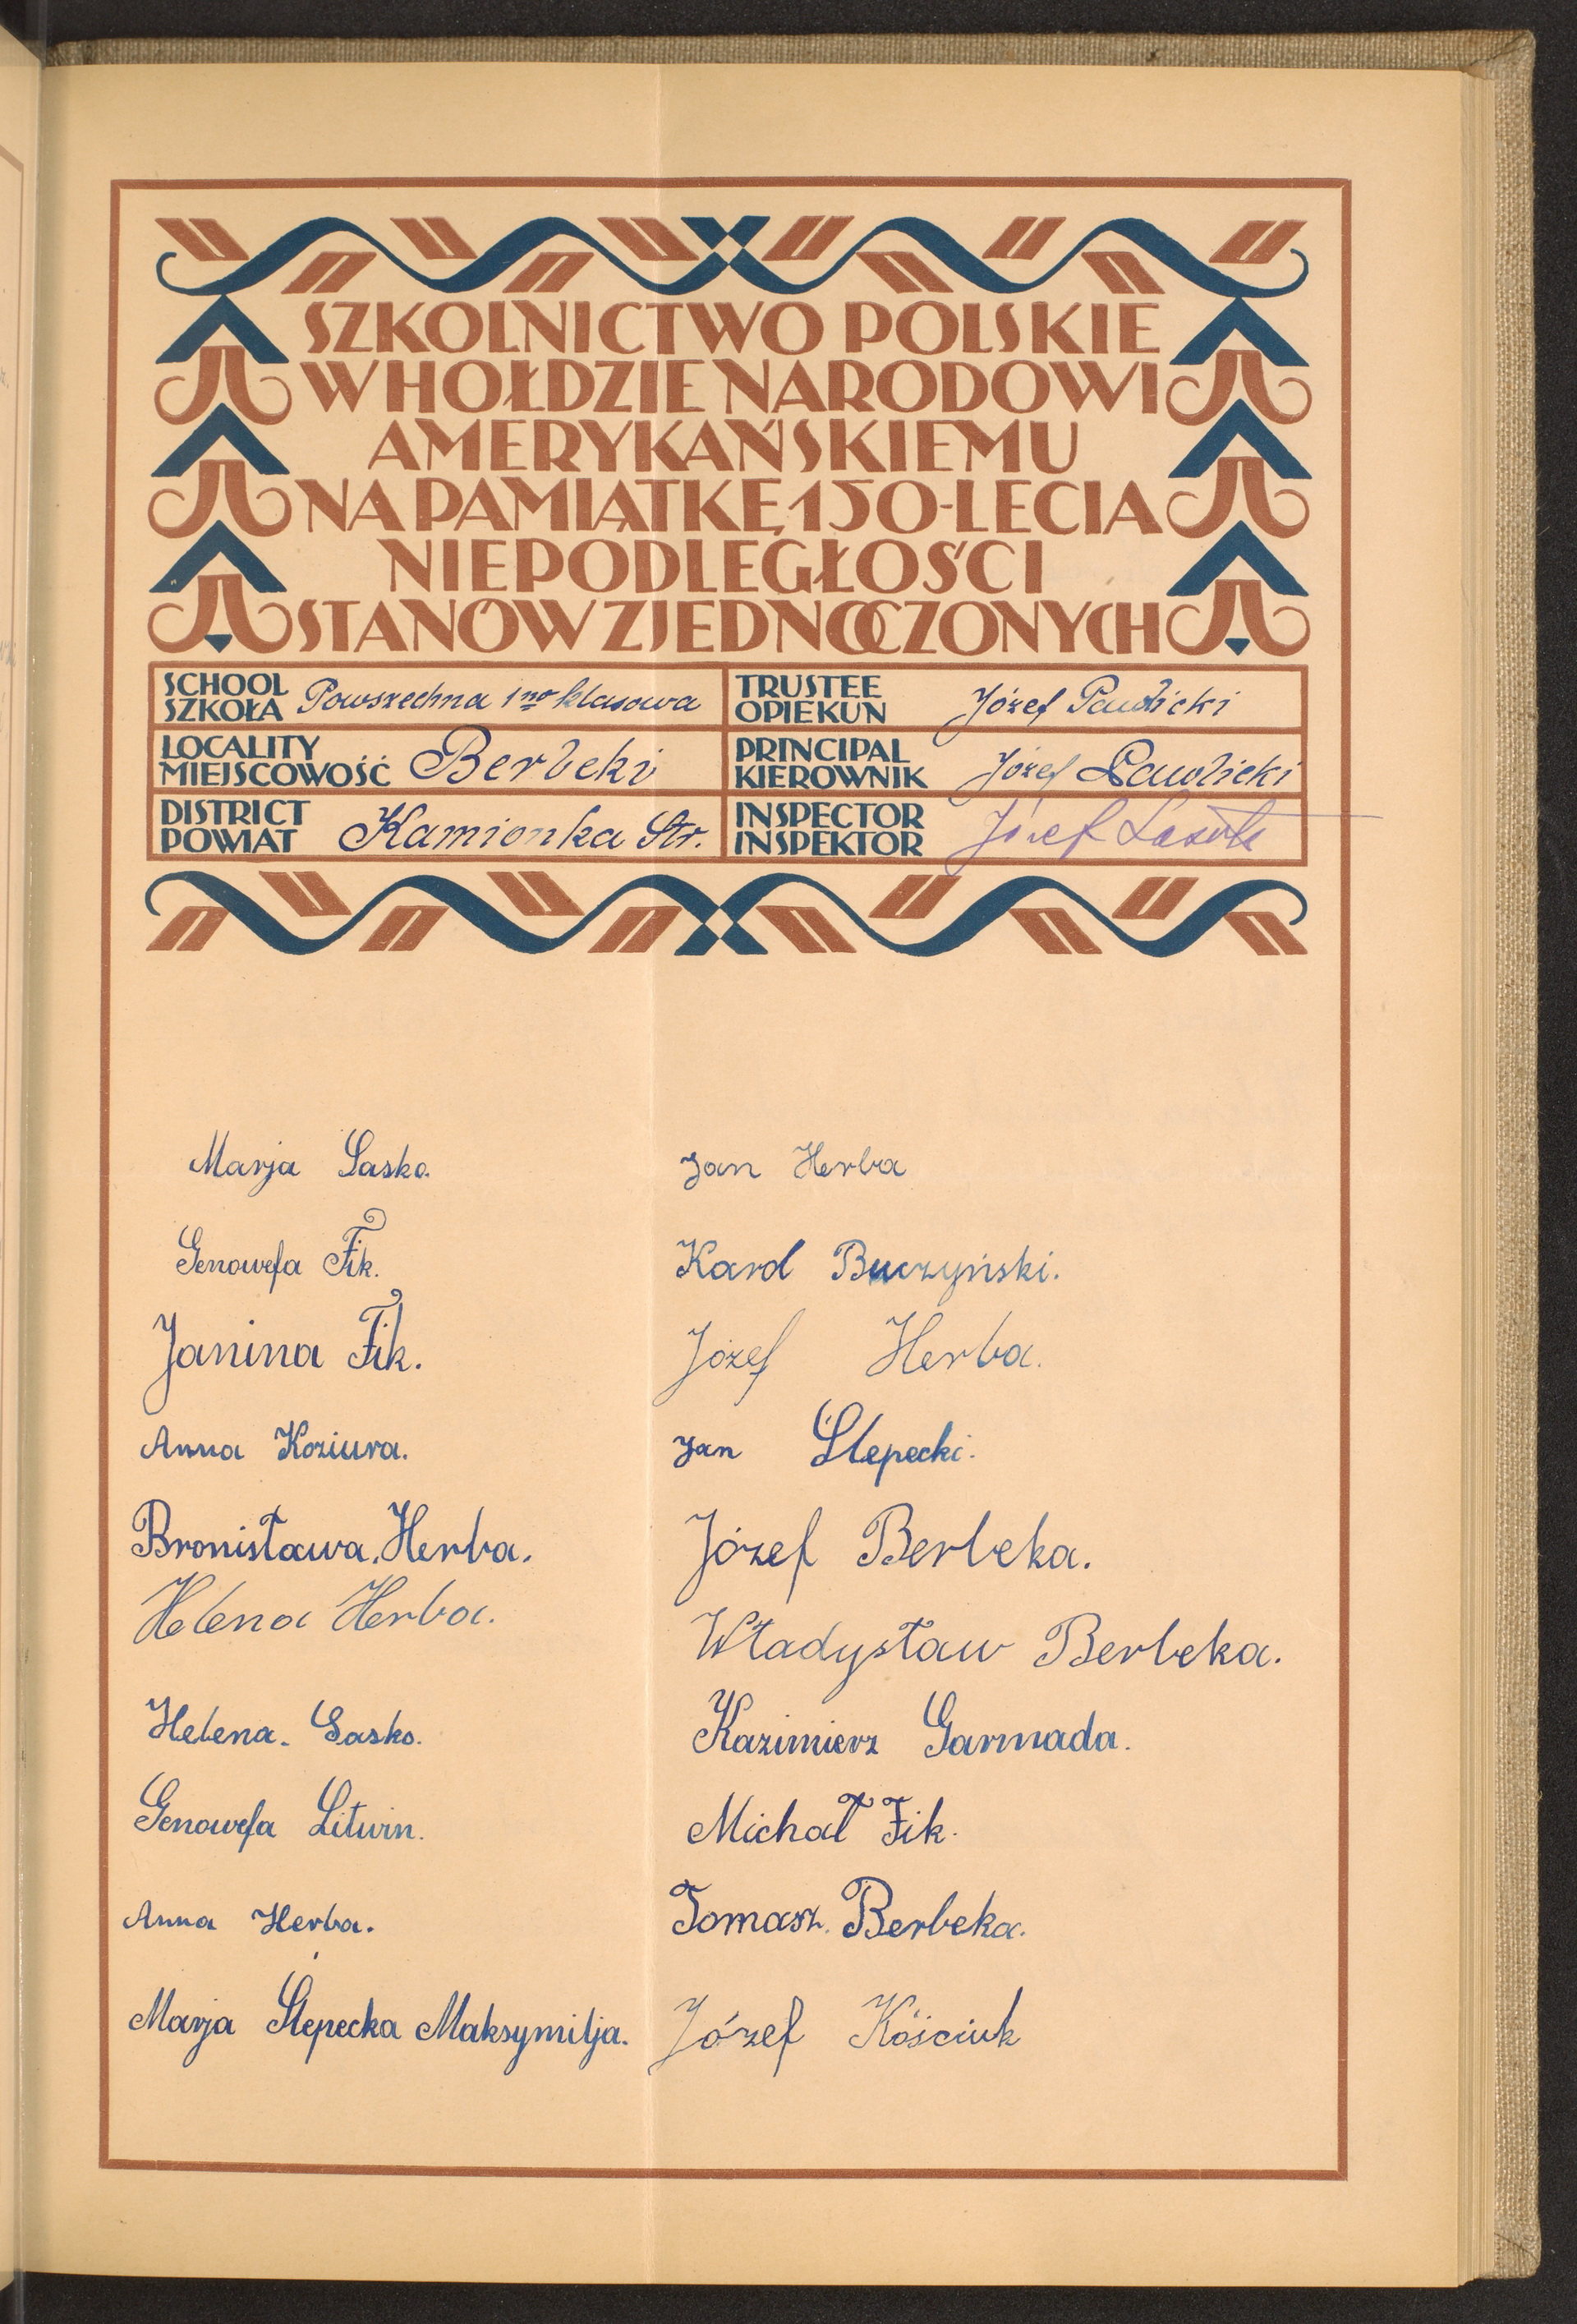 SZKOLNICTWO POLSKIE
W HOŁDZIE NARODOWI
AMERYKAŃSKIEMU
NA PAMIĄTKĘ 150-LECIA
NIEPODLEGŁOŚCI
STANÓW ZJEDNOCZONYCH
SCHOOL
SZKOŁA
Powszechna 1no klasowa
TRUSTEE
OPIEKUN
Józef Pawlicki
LOCALITY
MIEJSCOWOŚĆ
Berbeki
PRINCIPAL
KIEROWNIK
Józef Pawlicki
DISTRICT
POWIAT
Kamionka Str.
INSPECTOR
INSPEKTOR
Józef
Marja Sasko.
Genowefa Fik.
Janina Fik.
Anna Koziura.
Bronisława. Herba.
Helena Herba.
Helena. Sasko.
Genowefa Litwin.
Anna Herba.
Marja Ślepecka Maksymilja.
Jan Herba
Karol Buczyński.
Józef Herba.
Jan Ślepecki.
Józef Berbeka.
Władysław Berbeka.
Kazimierz Garmada.
Michał Fik.
Tomasz. Berbeka.
Józef Kościuk